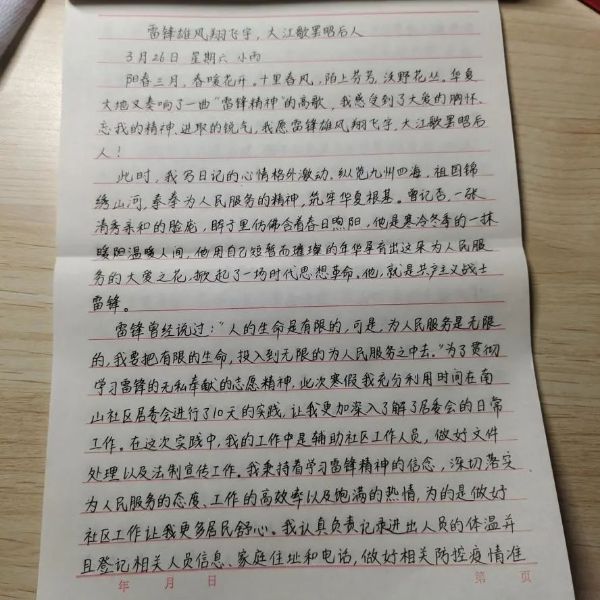 雷锋雄风翔飞宇，大江歌罢昭后人
3月26日 星期六 小雨
阳春三月，春暖花开。十里春风，陌上芬芳，沃野花丛。华夏
大地又奏响了一曲“雷锋精神”的高歌，我感受到了大爱的胸怀、
忘我的精神、进取的锐气，我愿雷锋雄风翔飞宇，大江歌罢昭后
人！
此时，我写日记的心情格外激动，纵览九州四海，祖国锦
绣山河，拳拳为人民服务的精神，筑牢华夏根基。曾记否，一张
清秀亲和的脸庞，眸子里仿佛含着春日煦阳，他是寒冷冬季的一抹
暖阳温暖人间，他用自己短暂而璀璨的年华孕育出这朵为人民服
务的大爱之花，掀起了一场时代思想革命。他，就是共产主义战士
雷锋。
雷锋曾经说过：“人的生命是有限的，可是，为人民服务是无限
的，我要把有限的生命，投入到无限的为人民服务之中去。”为了贯彻
学习雷锋的无私奉献的志愿精神，此次寒假我充分利用时间在南
山社区居委会进行了10天的实践，让我更加深入了解了居委会的日常
工作。在这次实践中，我的工作中是辅助社区工作人员，做好文件
处理以及法制宣传工作。我秉持着学习雷锋精神的信念，深切落实
为人民服务的态度、工作的高效率以及饱满的热情，为的是做好
社区工作让我更多居民舒心。我认真负责记录进出人员的体温并
且登记相关人员信息、家庭住址和电话，做好相关防控疫情准
年 月 日 第 页